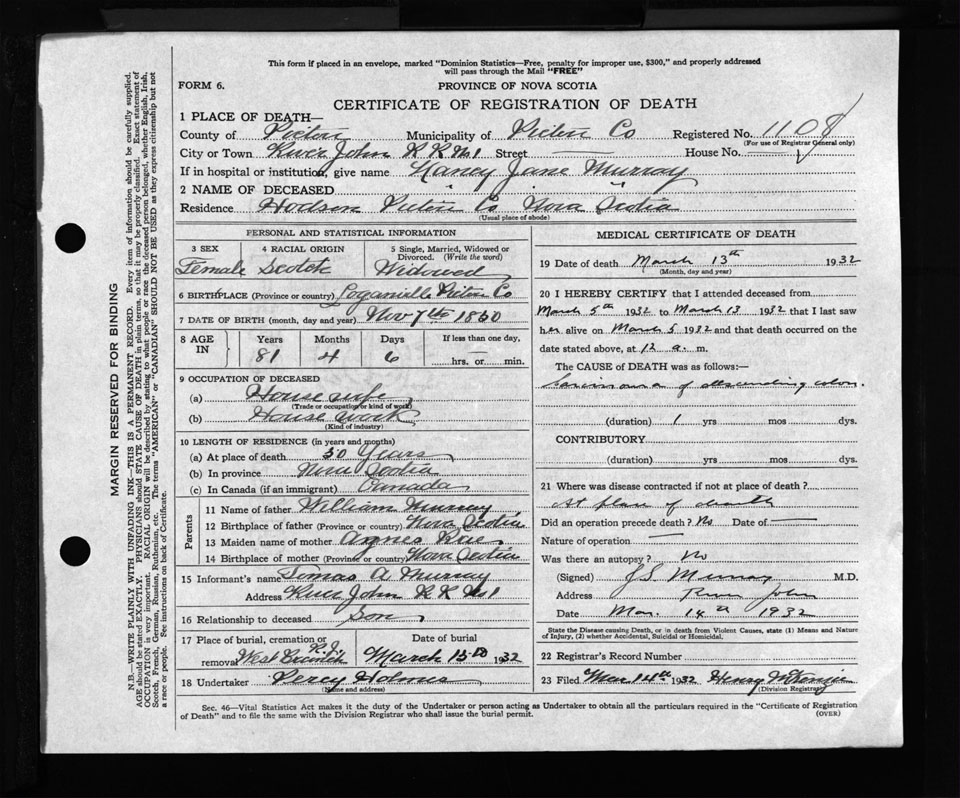 This form if placed in an envelope, marked "Dominion Statistics—Free, penalty for improper use, $300," and properly addressed
will pass through the Mail "FREE"
FORM 6.
PROVINCE OF NOVA SCOTIA
CERTIFICATE OF REGISTRATION OF DEATH
1 PLACE OF DEATH—
County of Pictou Municipality of Pictou Co Registered No. 1108
(For use of Registrar General only)
City or Town River John R R No 1 Street — House No.
If in hospital or institution, give name Nancy Jane Murray
2 NAME OF DECEASED " " "
Residence Hodson Pictou Co Nova Scotia
(Usual place of abode)
MARGIN RESERVED FOR BINDING
N.B.—WRITE PLAINLY WITH UNFADING INK—THIS IS A PERMANENT RECORD. Every item of information should be carefully supplied.
AGE should be stated EXACTLY. PHYSICIANS should STATE CAUSE OF DEATH in plain terms, so that it may be properly classified. Exact statement of
OCCUPATION is very important. RACIAL ORIGIN will be described by stating to what people or race the deceased person belonged, whether English, Irish,
Scotch, French, German, Russian, Ruthenian, etc. The terms "AMERICAN" or "CANADIAN" SHOULD NOT BE USED as they express citizenship but not
a race or people. See instructions on back of Certificate.
PERSONAL AND STATISTICAL INFORMATION
3 SEX 4 RACIAL ORIGIN 5 Single, Married, Widowed or
Divorced. (Write the word)
Female Scotch Widowed
6 BIRTHPLACE (Province or country) Loganville Pictou Co
7 DATE OF BIRTH (month, day and year) Nov 7th 1850
8 AGE IN Years Months Days If less than one day,
81 4 6 — hrs. or min.
9 OCCUPATION OF DECEASED
(a) House wife
(Trade or occupation or kind of work)
(b) House work
(Kind of industry)
10 LENGTH OF RESIDENCE (in years and months)
(a) At place of death 50 Years
(b) In province Nova Scotia
(c) In Canada (if an immigrant) Canada
Parents
11 Name of father William Murray
12 Birthplace of father (Province or country) Nova Scotia
13 Maiden name of mother Agnes Rae
14 Birthplace of mother (Province or country) Nova Scotia
15 Informant's name Tomas A Murray
Address River John R R No 1
16 Relationship to deceased Son
17 Place of burial, cremation or
removal West Branch R.J.
Date of burial
March 15th 1932
18 Undertaker Percy Holmes
(Name and address)
MEDICAL CERTIFICATE OF DEATH
19 Date of death March 13th 1932
(Month, day and year)
20 I HEREBY CERTIFY that I attended deceased from
March 5th 1932 to March 13 1932 that I last saw
her alive on March 5 1932 and that death occurred on the
date stated above, at 12 a. m.
The CAUSE OF DEATH was as follows:—
Carcinoma of descending colon.
(duration) 1 yrs mos dys.
CONTRIBUTORY
(duration) yrs mos dys.
21 Where was disease contracted if not at place of death?
At place of death
Did an operation precede death? No Date of —
Nature of operation —
Was there an autopsy? No
(Signed) J S Murray M.D.
Address River John
Date Mar. 14th 1932
State the Disease causing Death, or in death from Violent Causes, state (1) Means and Nature
of Injury, (2) whether Accidental, Suicidal or Homicidal.
22 Registrar's Record Number
23 Filed Mar 14th 1932 Henry
(Division Registrar)
Sec. 46—Vital Statistics Act makes it the duty of the Undertaker or person acting as Undertaker to obtain all the particulars required in the "Certificate of Registration
of Death" and to file the same with the Division Registrar who shall issue the burial permit.
(OVER)